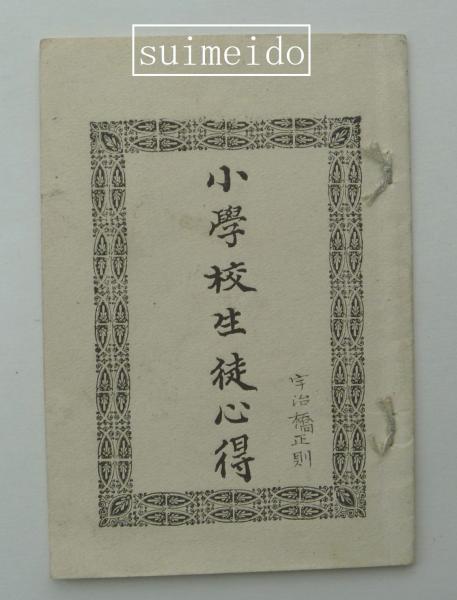 suimeido
小學校生徒心得
宇治橋正則